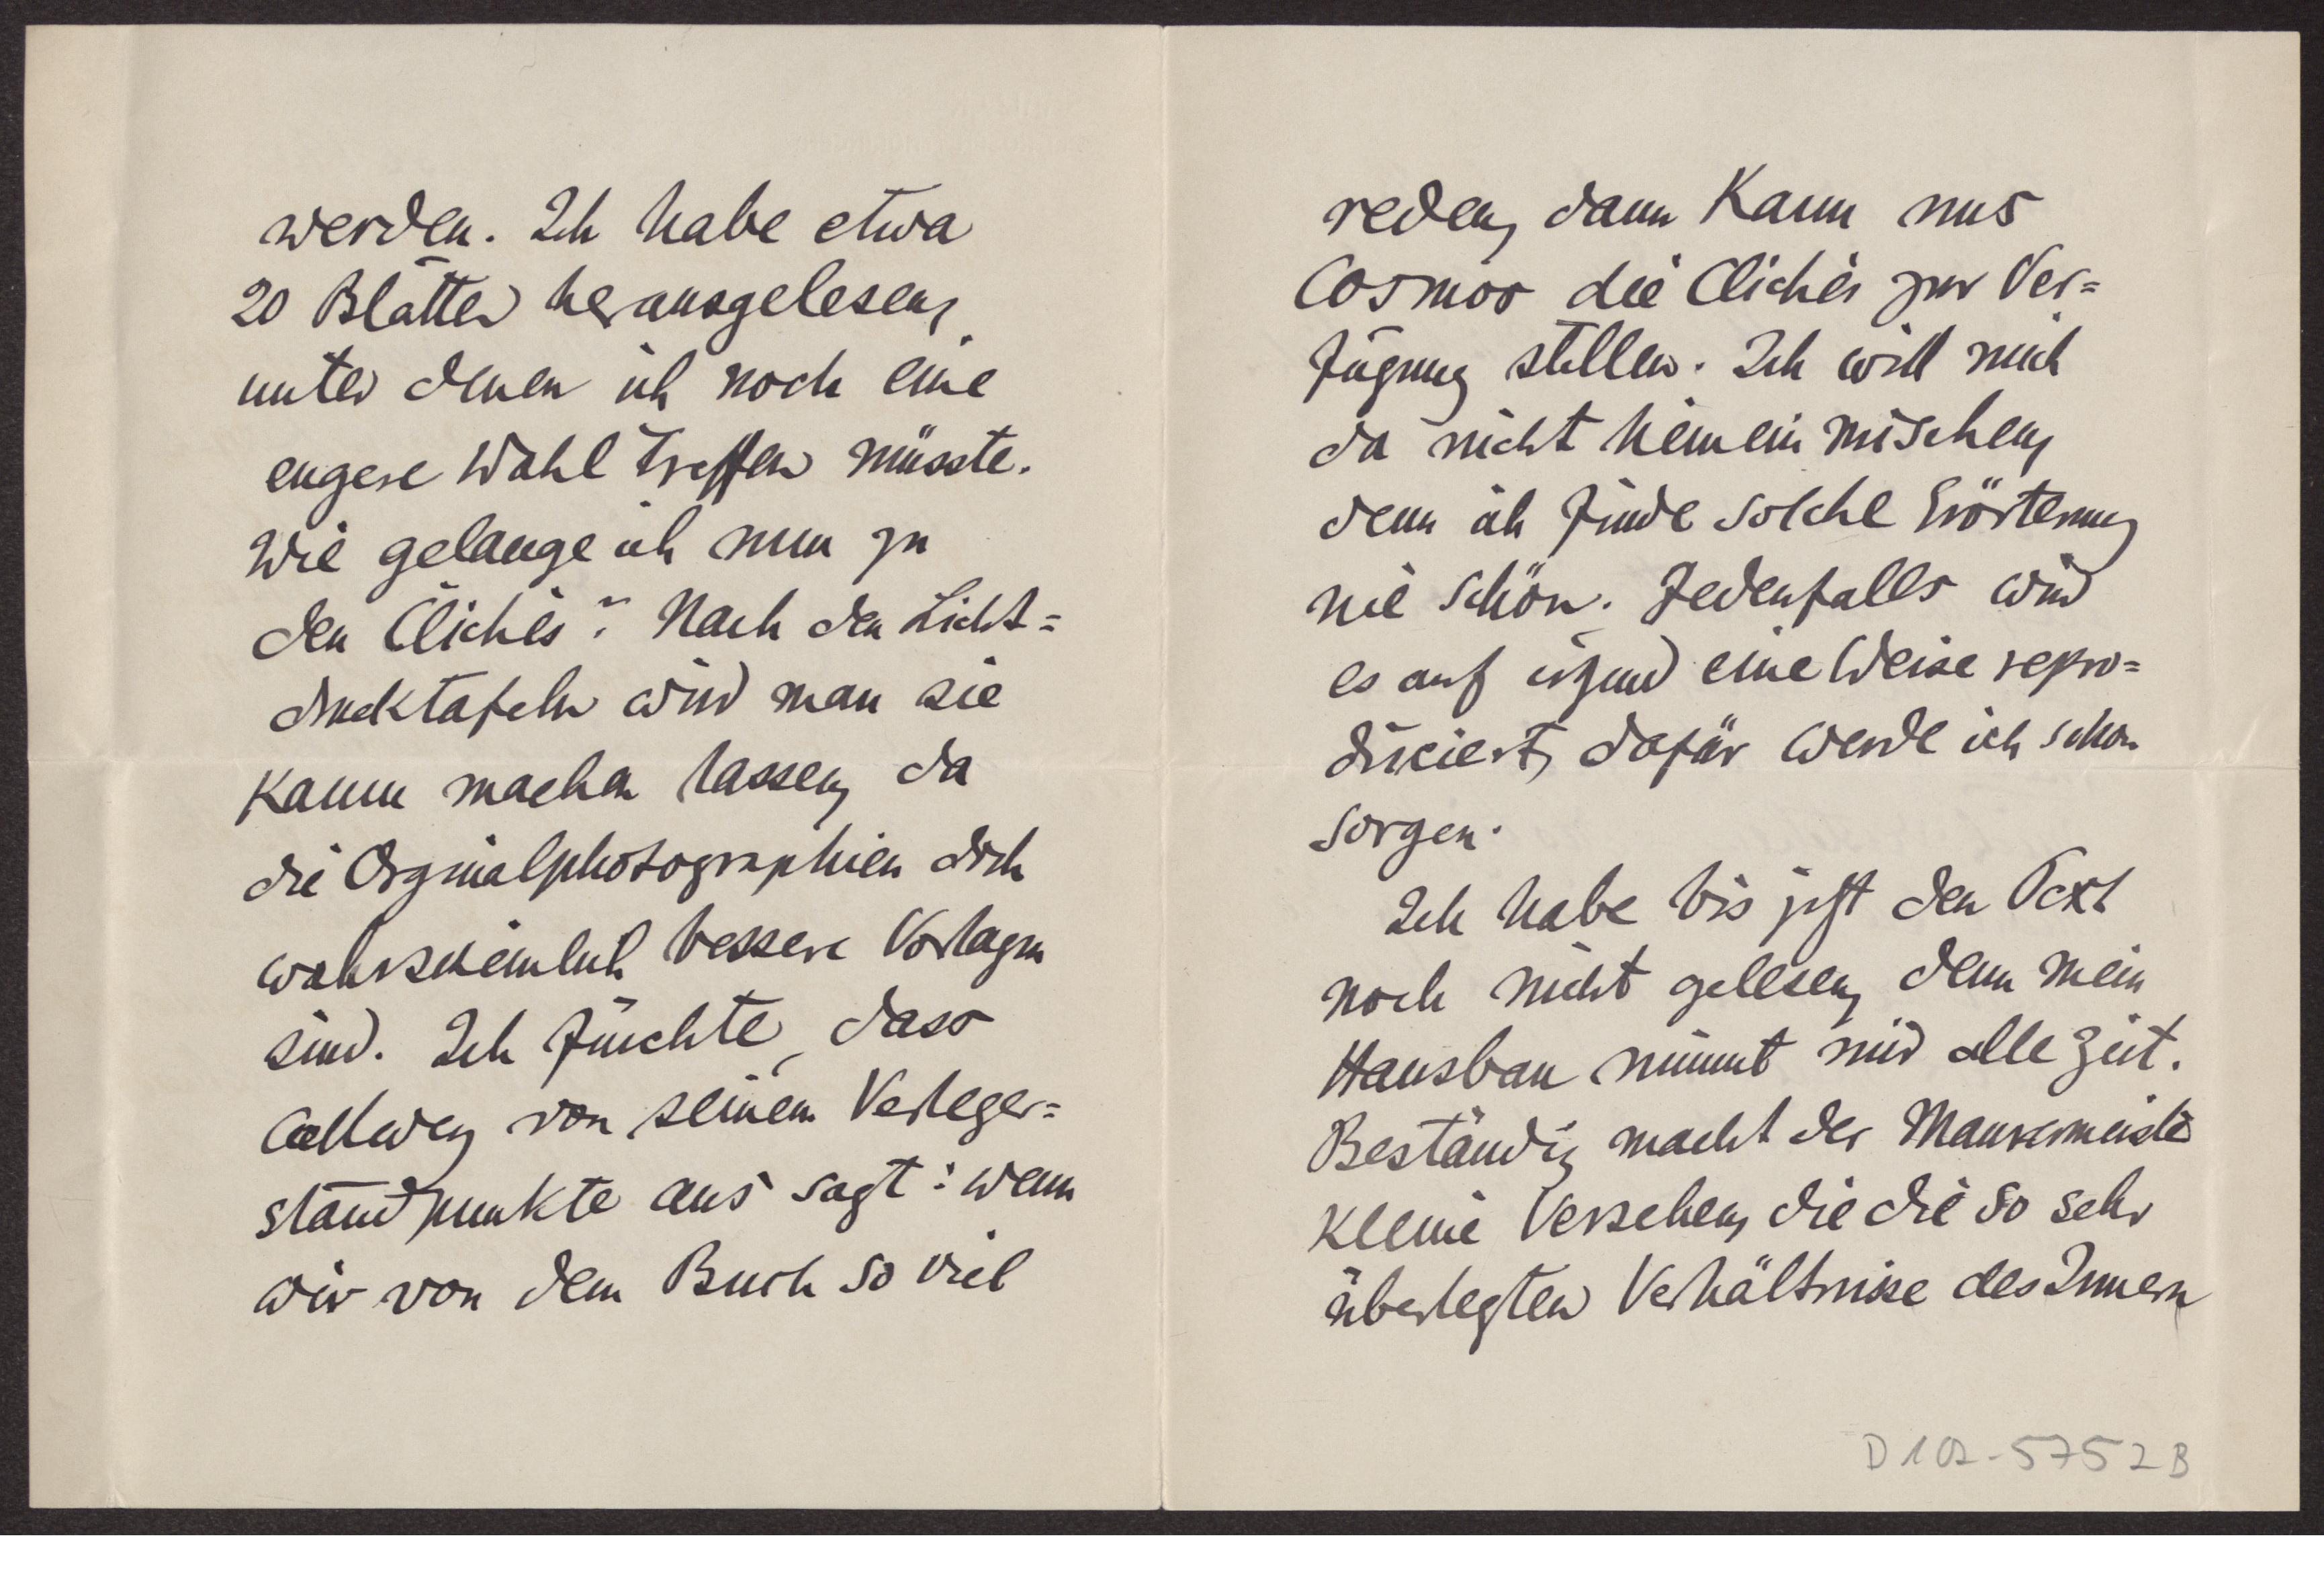 werden. Ich habe etwa
20 Blätter herausgelesen,
unter denen ich noch eine
engere Wahl treffen müsste.
Wie gelange ich nun zu
den Clichés? Nach den Licht=
drucktafeln wird man sie
kaum machen lassen, da
die Orginalphotographien doch
wahrscheinlich bessere Vorlagen
sind. Ich fürchte, dass
Callwey von seinem Verleger=
standpunkte aus sagt: wenn
wir von dem Buch so viel
reden, dann kann uns
Cosmos die Clichés zur Ver=
fügung stellen. Ich will mich
da nicht hinein mischen,
denn ich finde solche Erörterung
nie schön. Jedenfalls wird
es auf irgend eine Weise repro=
duciert, dafür werde ich schon
sorgen.
Ich habe bis jetzt den Text
noch nicht gelesen, denn mein
Hausbau nimmt mir alle Zeit.
Beständig macht der Maurermeister
kleine Versehen, die die so sehr
überlegten Verhältnisse des Innern
D102-5752B